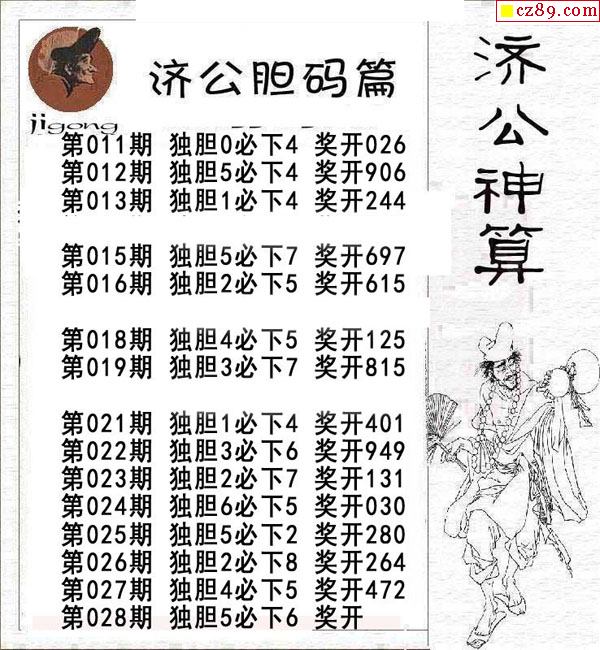 cz89.com
济公胆码篇
jigong
第011期 独胆0必下4 奖开026
第012期 独胆5必下4 奖开906
第013期 独胆1必下4 奖开244
第015期 独胆5必下7 奖开697
第016期 独胆2必下5 奖开615
第018期 独胆4必下5 奖开125
第019期 独胆3必下7 奖开815
第021期 独胆1必下4 奖开401
第022期 独胆3必下6 奖开949
第023期 独胆2必下7 奖开131
第024期 独胆6必下5 奖开030
第025期 独胆5必下2 奖开280
第026期 独胆2必下8 奖开264
第027期 独胆4必下5 奖开472
第028期 独胆5必下6 奖开
济公神算